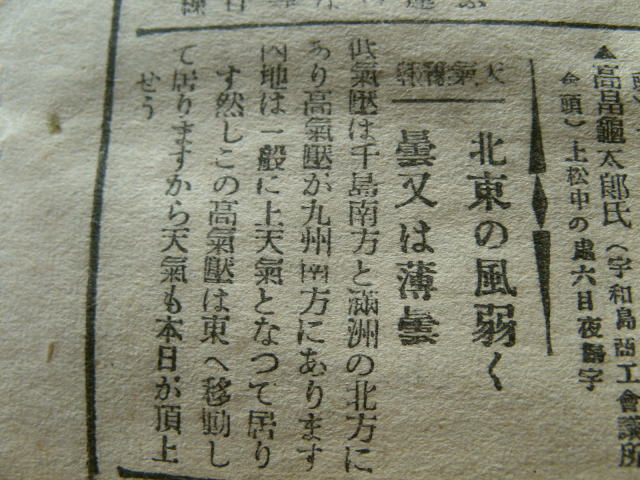 ▲高畠龜太郎氏(宇和島商工會議所
會頭)上松中の處六日夜歸宇
天氣豫報
北東の風弱く
曇又は薄曇
低氣壓は千島南方と滿洲の北方に
あり高氣壓が九州南方にあります
內地は一般に上天氣となつて居り
す然しこの高氣壓は東へ移動し
て居りますから天氣も本日が頂上
せう